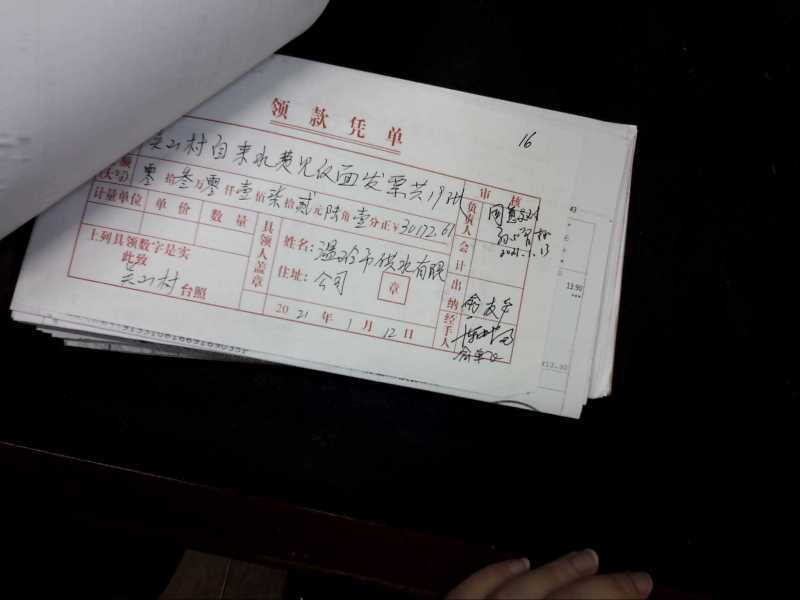 领款凭单
16
吴山村自来水费见反面发票共19张
额
(大写) 零拾叁万零仟壹佰柒拾贰元陆角壹分正¥30172.61
计量单位 单价 数量
上列具领数字是实
此致
吴山村台照
具领人盖章
姓名：温岭市供水有限
住址：公司
章
2021年1月12日
审核
负责人
会计
2021.1.13
出纳
经手人
43
13.90